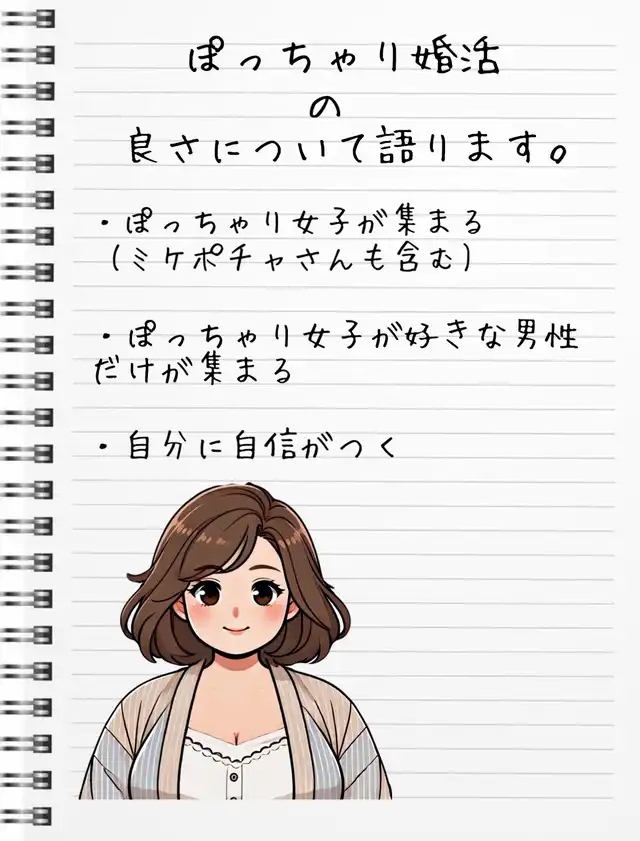 ぽっちゃり婚活
の
良さについて語ります。
・ぽっちゃり女子が集まる
(ミケポチャさんも含む)
・ぽっちゃり女子が好きな男性
だけが集まる
・自分に自信がつく